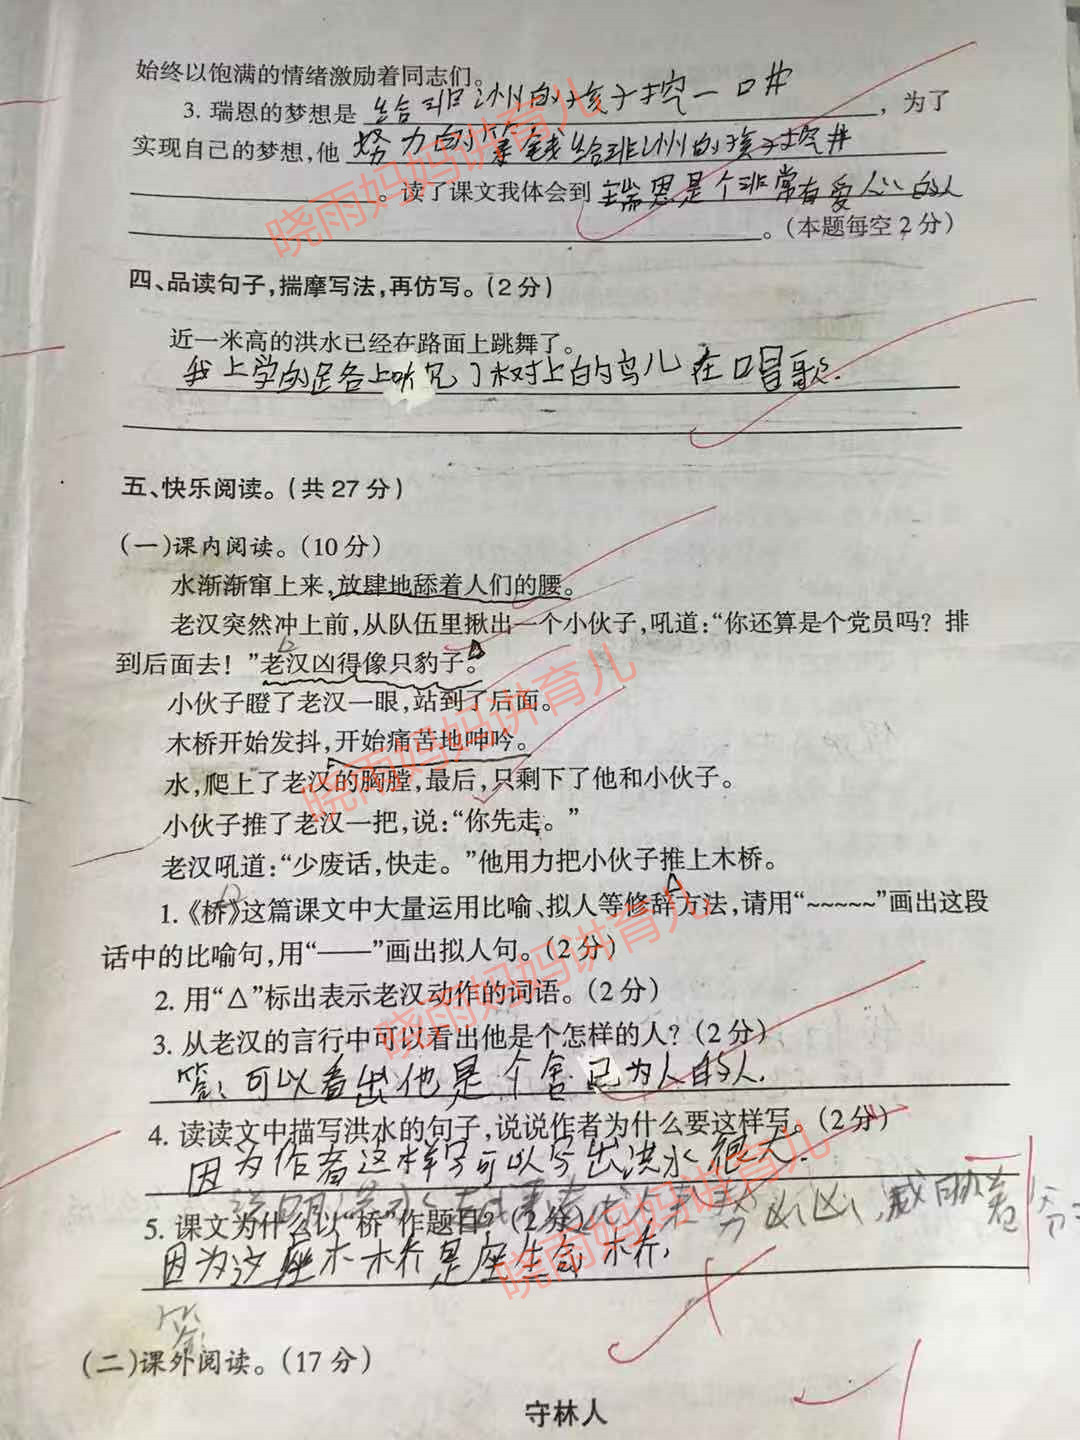 始终以饱满的情绪激励着同志们。
3. 瑞恩的梦想是 给非洲的孩子挖一口井 ，为了
实现自己的梦想,他 努力的筹钱给非洲的孩子挖井
。读了课文我体会到 瑞恩是个非常有爱心的人
。(本题每空2分)
四、品读句子,揣摩写法,再仿写。(2分)
近一米高的洪水已经在路面上跳舞了。
我上学的路上听见了树上的鸟儿在唱歌.
五、快乐阅读。(共27分)
(一)课内阅读。(10分)
水渐渐窜上来,放肆地舔着人们的腰。
老汉突然冲上前,从队伍里揪出一个小伙子,吼道:“你还算是个党员吗？排
到后面去！”老汉凶得像只豹子。
小伙子瞪了老汉一眼,站到了后面。
木桥开始发抖,开始痛苦地呻吟。
水,爬上了老汉的胸膛,最后,只剩下了他和小伙子。
小伙子推了老汉一把,说:“你先走。”
老汉吼道:“少废话,快走。”他用力把小伙子推上木桥。
1.《桥》这篇课文中大量运用比喻、拟人等修辞方法,请用“~~~~~”画出这段
话中的比喻句,用“——”画出拟人句。(2分)
2. 用“△”标出表示老汉动作的词语。(2分)
3. 从老汉的言行中可以看出他是个怎样的人？(2分)
答:可以看出他是个舍己为人的人.
4. 读读文中描写洪水的句子,说说作者为什么要这样写。(2分)
因为作者这样写可以写出洪水很大.
5. 课文为什么以“桥”作题目？(2分)
因为这座木桥是座生命桥.
答:
(二)课外阅读。(17分)
守林人
晓雨妈妈讲育儿
晓雨妈妈讲育儿
晓雨妈妈讲育儿
晓雨妈妈讲育儿